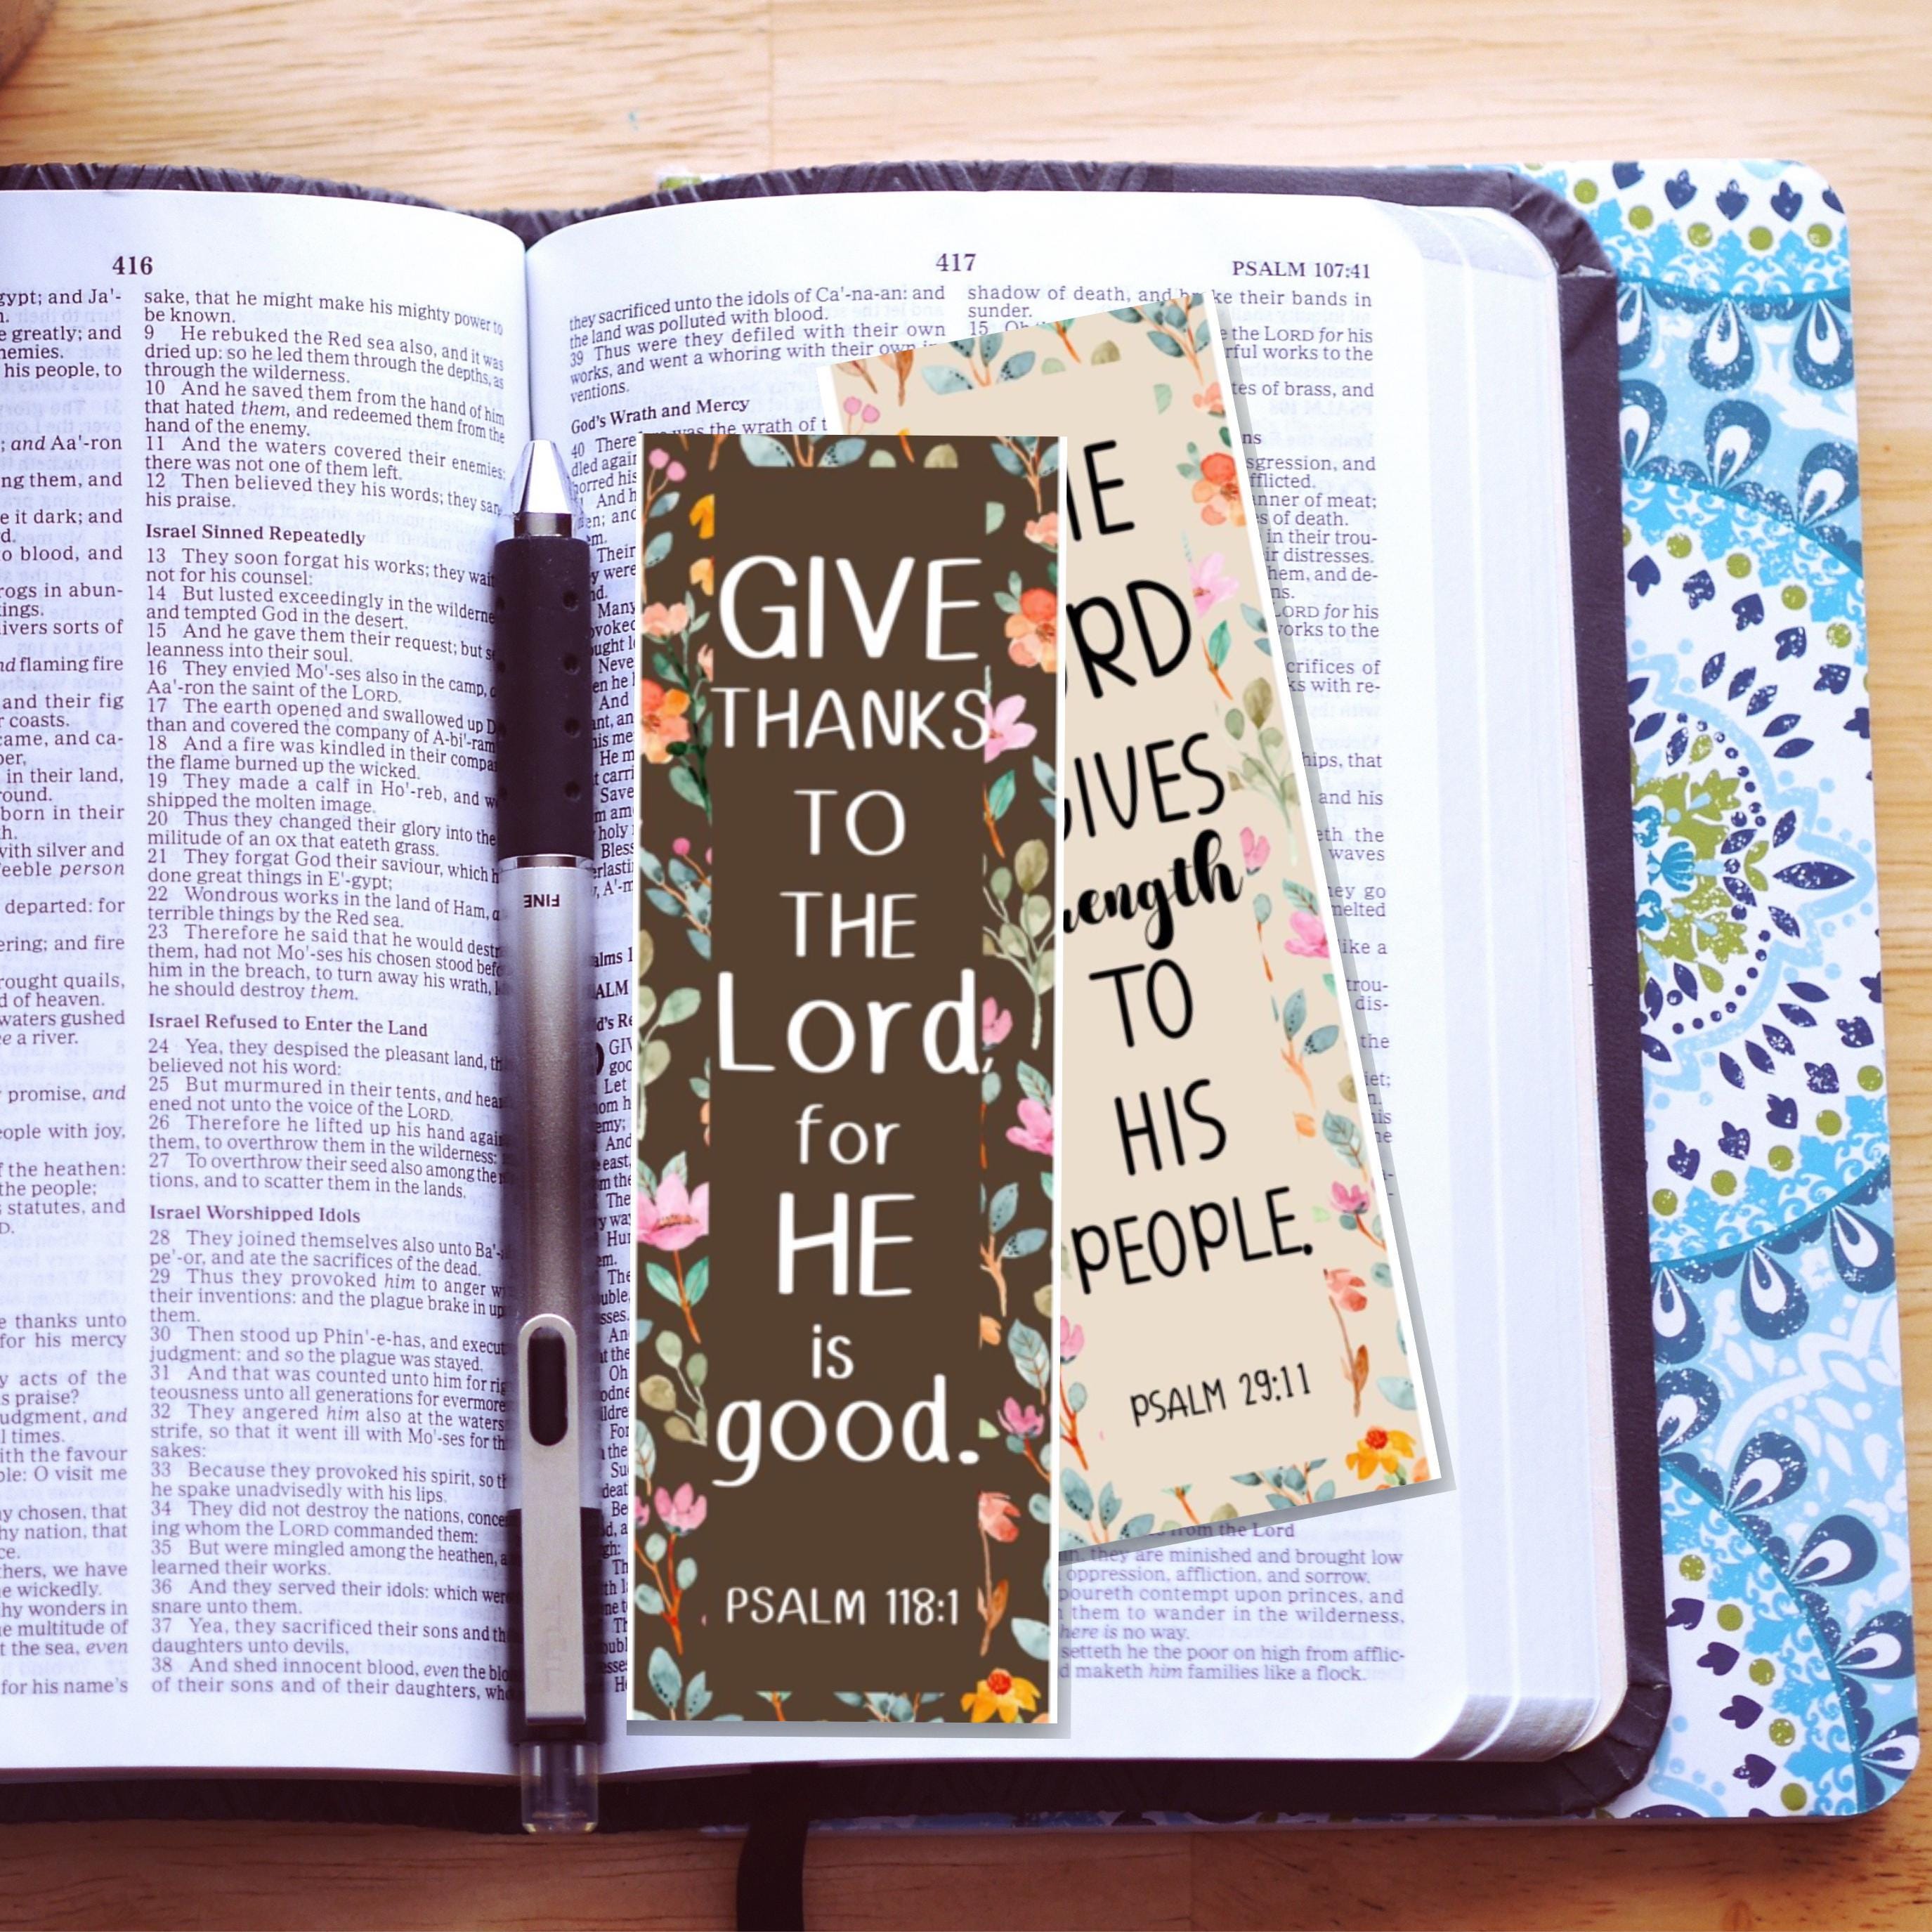 416
gypt; and Ja'-
e greatly; and
his people, to
; and Aa'-ron
ng them, and
e it dark; and
o blood, and
rogs in abun-
ivers sorts of
nd flaming fire
and their fig
coasts.
came, and ca-
in their land,
born in their
with silver and
eeble person
departed: for
ering; and fire
rought quails,
d of heaven.
waters gushed
e a river.
promise, and
eople with joy,
f the heathen:
the people;
statutes, and
e thanks unto
for his mercy
y acts of the
s praise?
udgment, and
l times.
ith the favour
ple: O visit me
y chosen, that
hy nation, that
hers, we have
e wickedly.
hy wonders in
e multitude of
t the sea, even
for his name's
sake, that he might make his mighty power to
be known.
9 He rebuked the Red sea also, and it was
dried up: so he led them through the depths, as
through the wilderness.
10 And he saved them from the hand of him
that hated them, and redeemed them from the
hand of the enemy.
11 And the waters covered their enemies:
there was not one of them left.
12 Then believed they his words; they sang
his praise.
Israel Sinned Repeatedly
13 They soon forgat his works; they wait
not for his counsel:
14 But lusted exceedingly in the wilderne
and tempted God in the desert.
15 And he gave them their request; but s
leanness into their soul.
16 They envied Mo'-ses also in the camp,
Aa'-ron the saint of the LORD.
17 The earth opened and swallowed up D
than and covered the company of A-bi'-ram
18 And a fire was kindled in their compa
the flame burned up the wicked.
19 They made a calf in Ho'-reb, and w
shipped the molten image.
20 Thus they changed their glory into the
militude of an ox that eateth grass.
21 They forgat God their saviour, which h
done great things in E'-gypt;
22 Wondrous works in the land of Ham, a
terrible things by the Red sea.
23 Therefore he said that he would destr
them, had not Mo'-ses his chosen stood befo
him in the breach, to turn away his wrath, l
he should destroy them.
Israel Refused to Enter the Land
24 Yea, they despised the pleasant land, th
believed not his word:
25 But murmured in their tents, and hear
ened not unto the voice of the LORD.
26 Therefore he lifted up his hand agai
them, to overthrow them in the wilderness:
27 To overthrow their seed also among the
tions, and to scatter them in the lands.
Israel Worshipped Idols
28 They joined themselves also unto Ba'-
pe'-or, and ate the sacrifices of the dead.
29 Thus they provoked him to anger w
their inventions: and the plague brake in up
them.
30 Then stood up Phin'-e-has, and execut
judgment: and so the plague was stayed.
31 And that was counted unto him for rig
teousness unto all generations for evermore
32 They angered him also at the waters
strife, so that it went ill with Mo'-ses for th
sakes:
33 Because they provoked his spirit, so th
he spake unadvisedly with his lips.
34 They did not destroy the nations, conce
ing whom the LORD commanded them:
35 But were mingled among the heathen, a
learned their works.
36 And they served their idols: which were
snare unto them.
37 Yea, they sacrificed their sons and th
daughters unto devils,
38 And shed innocent blood, even the blo
of their sons and of their daughters, who
FINE
417
PSALM 107:41
they sacrificed unto the idols of Ca'-na-an: and
the land was polluted with blood.
39 Thus were they defiled with their own
works, and went a whoring with their own in
ventions.
God's Wrath and Mercy
40 There was the wrath of t
shadow of death, and brake their bands in
sunder.
15 Oh
e the LORD for his
rful works to the
tes of brass, and
sgression, and
fflicted.
nner of meat;
s of death.
in their trou-
ir distresses.
hem, and de-
LORD for his
orks to the
crifices of
ks with re-
hips, that
and his
eth the
waves
ey go
melted
like a
trou-
dis-
the
GIVE
THANKS
TO
THE
Lord,
for
HE
is
good.
PSALM 118:1
HE
ORD
GIVES
rength
TO
HIS
PEOPLE.
PSALM 29:11
from the Lord
they are minished and brought low
oppression, affliction, and sorrow.
poureth contempt upon princes, and
them to wander in the wilderness,
here is no way.
setteth he the poor on high from afflic-
d maketh him families like a flock.